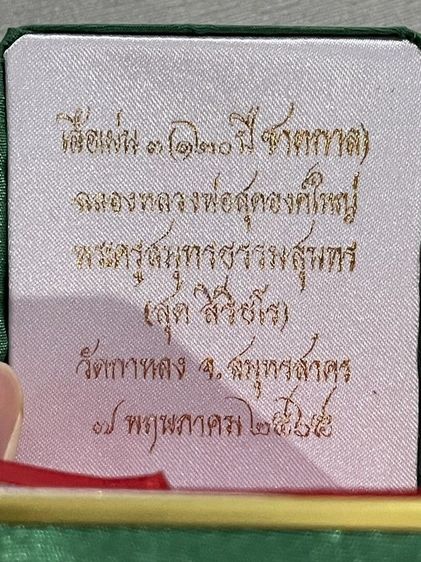 เสือเผ่น ๓ (๑๒๐ ปี ชาตกาล)
ฉลองหลวงพ่อสุดองค์ใหญ่
พระครูสมุทรธรรมสุนทร
(สุด สิริธโร)
วัดกาหลง จ. สมุทรสาคร
๗ พฤษภาคม ๒๕๖๕